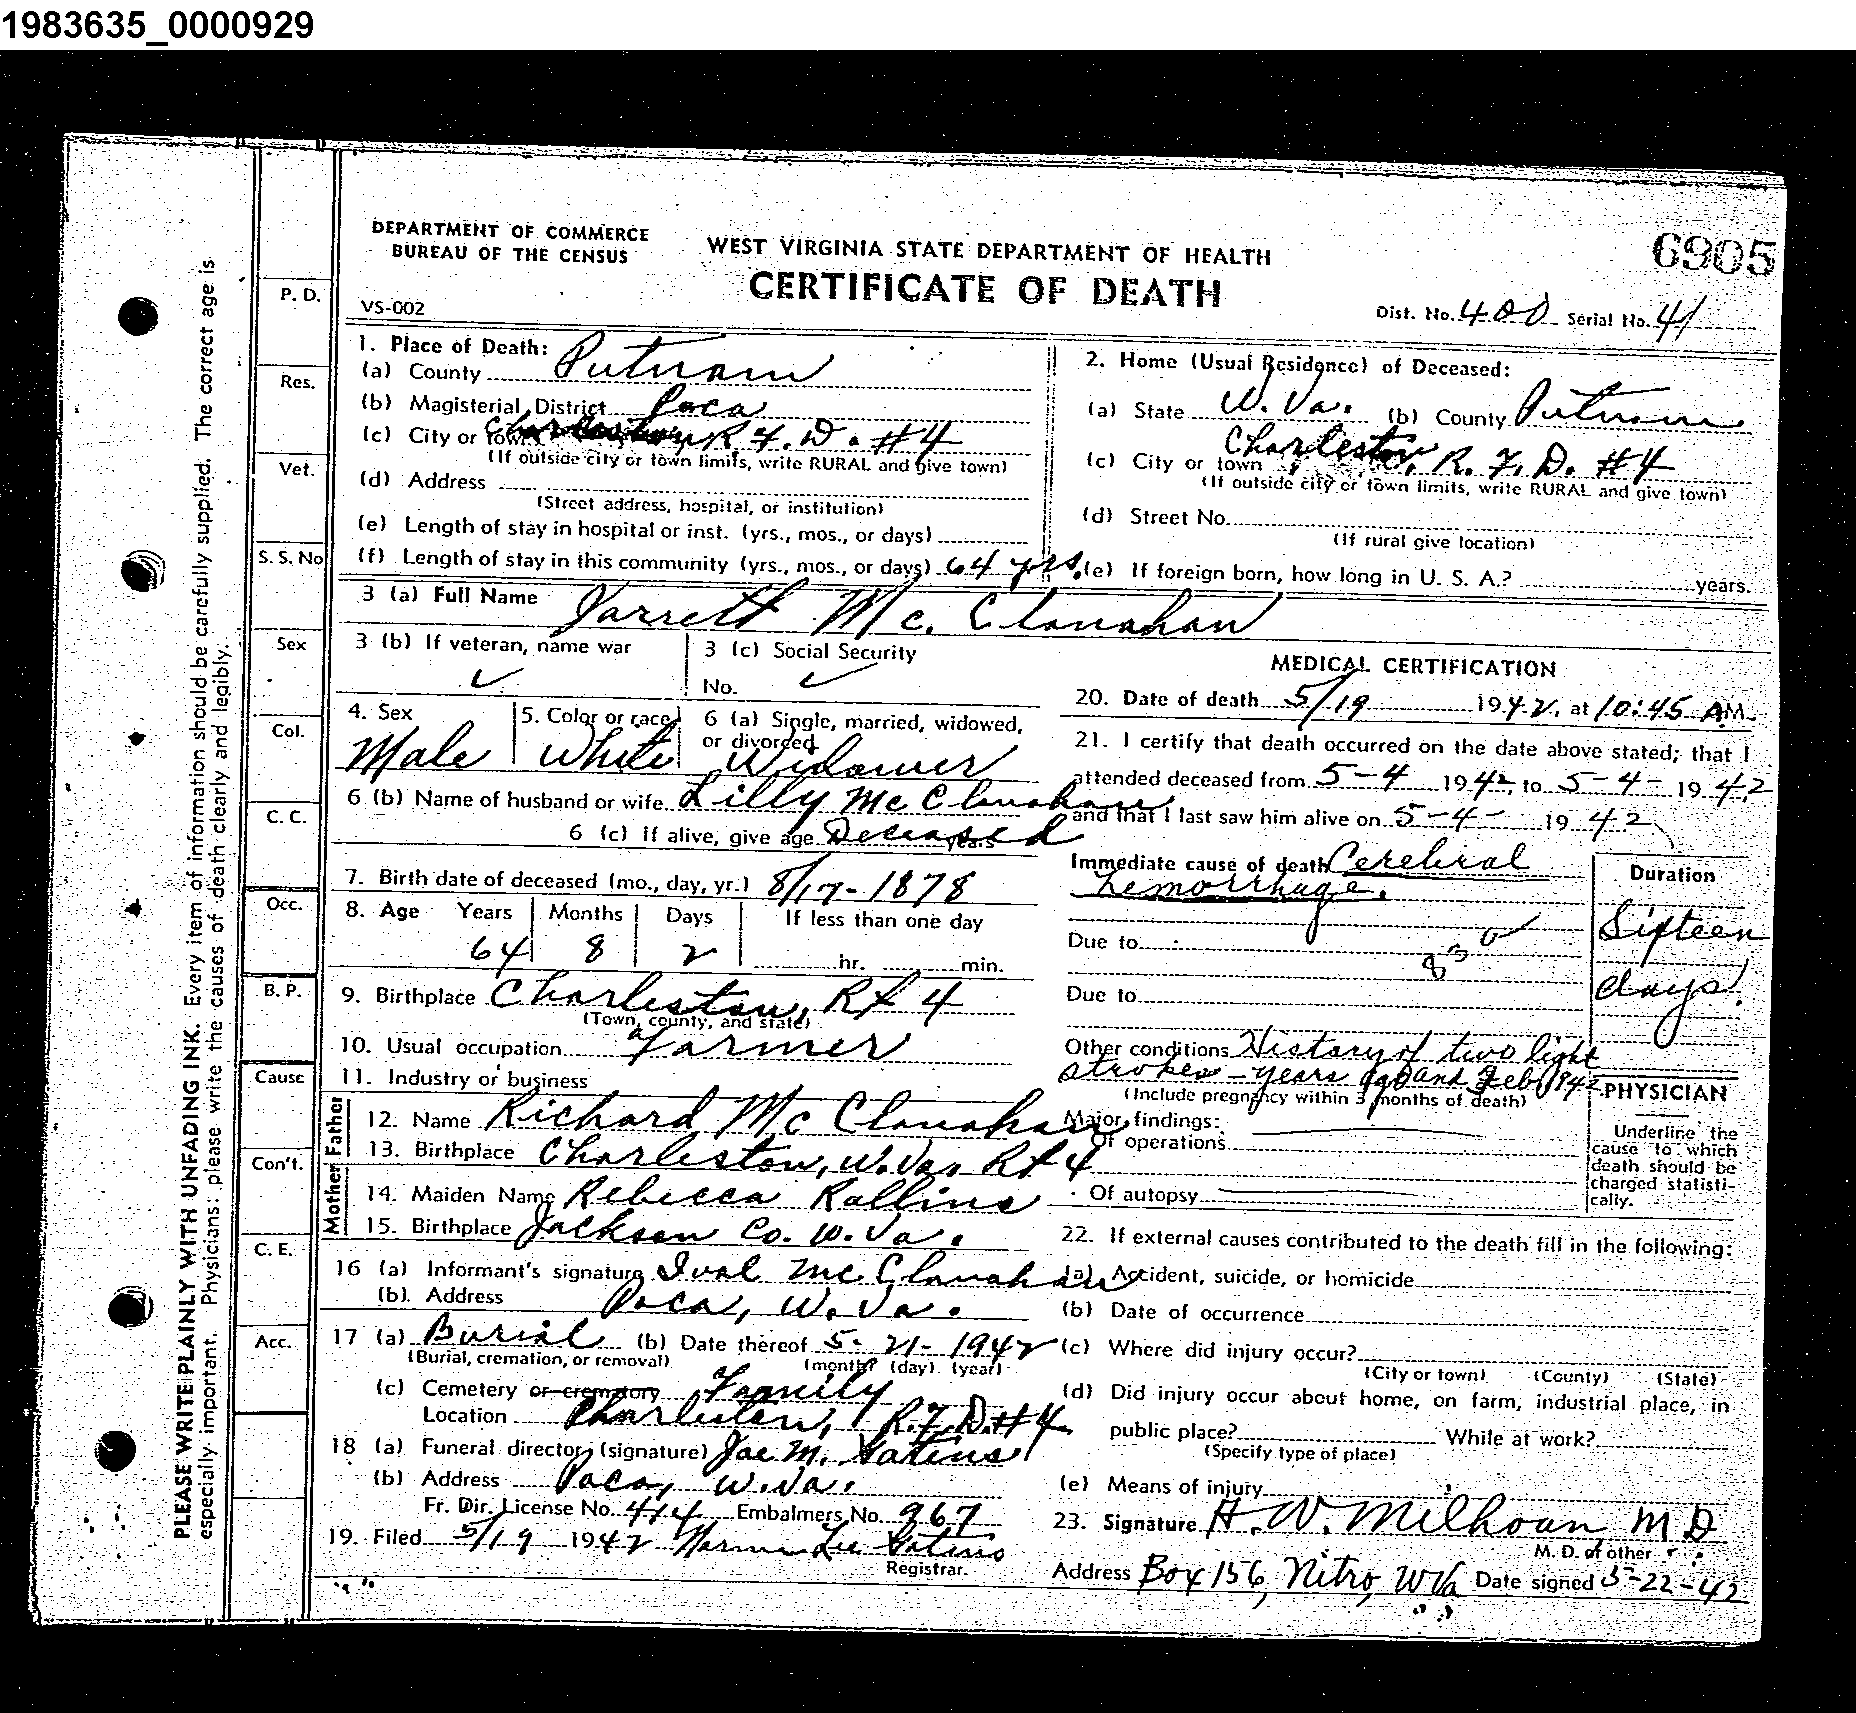 1983635_0000929
DEPARTMENT OF COMMERCE
BUREAU OF THE CENSUS
WEST VIRGINIA STATE DEPARTMENT OF HEALTH
6905
CERTIFICATE OF DEATH
VS-002
Dist. No. 400 Serial No. 41
PLEASE WRITE PLAINLY WITH UNFADING INK. Every item of information should be carefully supplied. The correct age is
especially important. Physicians: please write the causes of death clearly and legibly.
P. D.
Res.
Vet.
S. S. No
Sex
Col.
C. C.
Occ.
B. P.
Cause
Con't.
C. E.
Acc.
1. Place of Death:
(a) County Putnam
(b) Magisterial District Poca
(c) City or town Charleston, R. F. D. #4
(If outside city or town limits, write RURAL and give town)
(d) Address
(Street address, hospital, or institution)
(e) Length of stay in hospital or inst. (yrs., mos., or days)
(f) Length of stay in this community (yrs., mos., or days) 64 yrs.
2. Home (Usual Residence) of Deceased:
(a) State W. Va. (b) County Putnam
(c) City or town Charleston, R. F. D. #4
(If outside city or town limits, write RURAL and give town)
(d) Street No.
(If rural give location)
(e) If foreign born, how long in U. S. A.? years.
3 (a) Full Name Jarrett Mc. Clanahan
3 (b) If veteran, name war ✓
3 (c) Social Security
No. ✓
4. Sex Male
5. Color or race White
6 (a) Single, married, widowed,
or divorced Widower
6 (b) Name of husband or wife Lilly Mc Clanahan
6 (c) If alive, give age Deceased years
7. Birth date of deceased (mo., day, yr.) 8/17-1878
8. Age Years Months Days If less than one day
64 8 2 hr. min.
9. Birthplace Charleston, Rt 4
(Town, county, and state)
10. Usual occupation Farmer
11. Industry or business
Father
12. Name Richard Mc Clanahan
13. Birthplace Charleston, W. Va. Rt 4
Mother
14. Maiden Name Rebecca Rollins
15. Birthplace Jackson Co. W. Va.
16 (a) Informant's signature Ival Mc Clanahan
(b). Address Poca, W. Va.
17 (a) Burial (b) Date thereof 5-21-1942
(Burial, cremation, or removal) (month) (day) (year)
(c) Cemetery or crematory Family
Location Charleston, R.F.D. #4
18 (a) Funeral director (signature) Joe M. Gatens
(b) Address Poca, W. Va.
Fr. Dir. License No. 414 Embalmers No. 967
19. Filed 5/19 1942 Lee Gatens
Registrar.
MEDICAL CERTIFICATION
20. Date of death 5/19 1942, at 10:45 AM.
21. I certify that death occurred on the date above stated; that I
attended deceased from 5-4 1942, to 5-4- 1942
and that I last saw him alive on 5-4- 1942
Immediate cause of death Cerebral
hemorrhage.
Duration
Sifteen
days.
Due to
83 0
Due to
Other conditions History of two light
strokes - years ago and Feb 1942
(Include pregnancy within 3 months of death)
Major findings:
Of operations
Of autopsy
PHYSICIAN
Underline the
cause to which
death should be
charged statisti-
cally.
22. If external causes contributed to the death fill in the following:
(a) Accident, suicide, or homicide
(b) Date of occurrence
(c) Where did injury occur?
(City or town) (County) (State)
(d) Did injury occur about home, on farm, industrial place, in
public place? While at work?
(Specify type of place)
(e) Means of injury
23. Signature H. W. Milhoan M D
M. D. of other
Address Box 156, Nitro, W Va Date signed 5-22-42